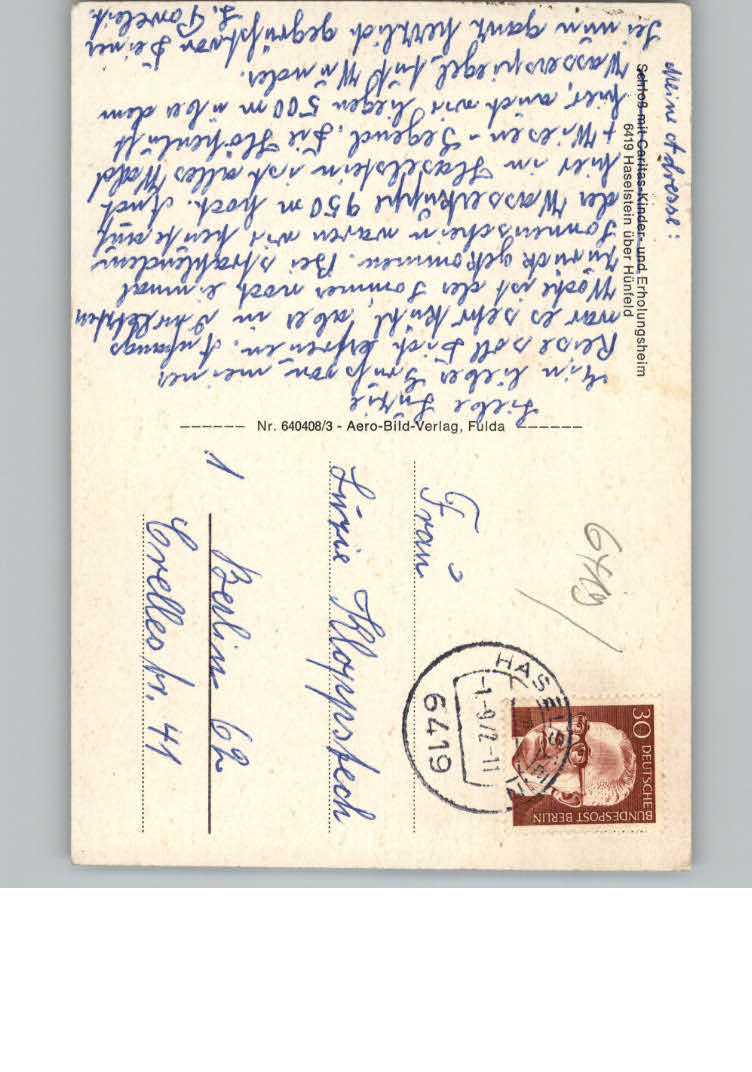 Meine Adresse:
Schloß mit Caritas-Kinder- und Erholungsheim
6419 Haselstein über Hünfeld
Liebe Luzie
Ein lieber Gruß von meiner
Reise soll Dich erfreuen. Anfangs
war es sehr kühl, aber in der letzten
Woche ist der Sommer noch einmal
zurück gekommen. Bei strahlendem
Sonnenschein waren wir heute auf
der Wasserkuppe 950 m hoch. Auch
hier in Haselstein ist alles Wald
+ Wiesen-Gegend. Die Höhenluft
hier, auch wir liegen 500 m über dem
Wasserspiegel, tut Wunder.
Sei nun ganz herzlich gegrüßt von Deiner
L.
Nr. 640408/3 - Aero-Bild-Verlag, Fulda
6419
HASELSTEIN
-1.-9.72-11
6419
30
DEUTSCHE
BUNDESPOST BERLIN
Frau
Luzie Kloppstech
1 Berlin 62
Crellestr. 41